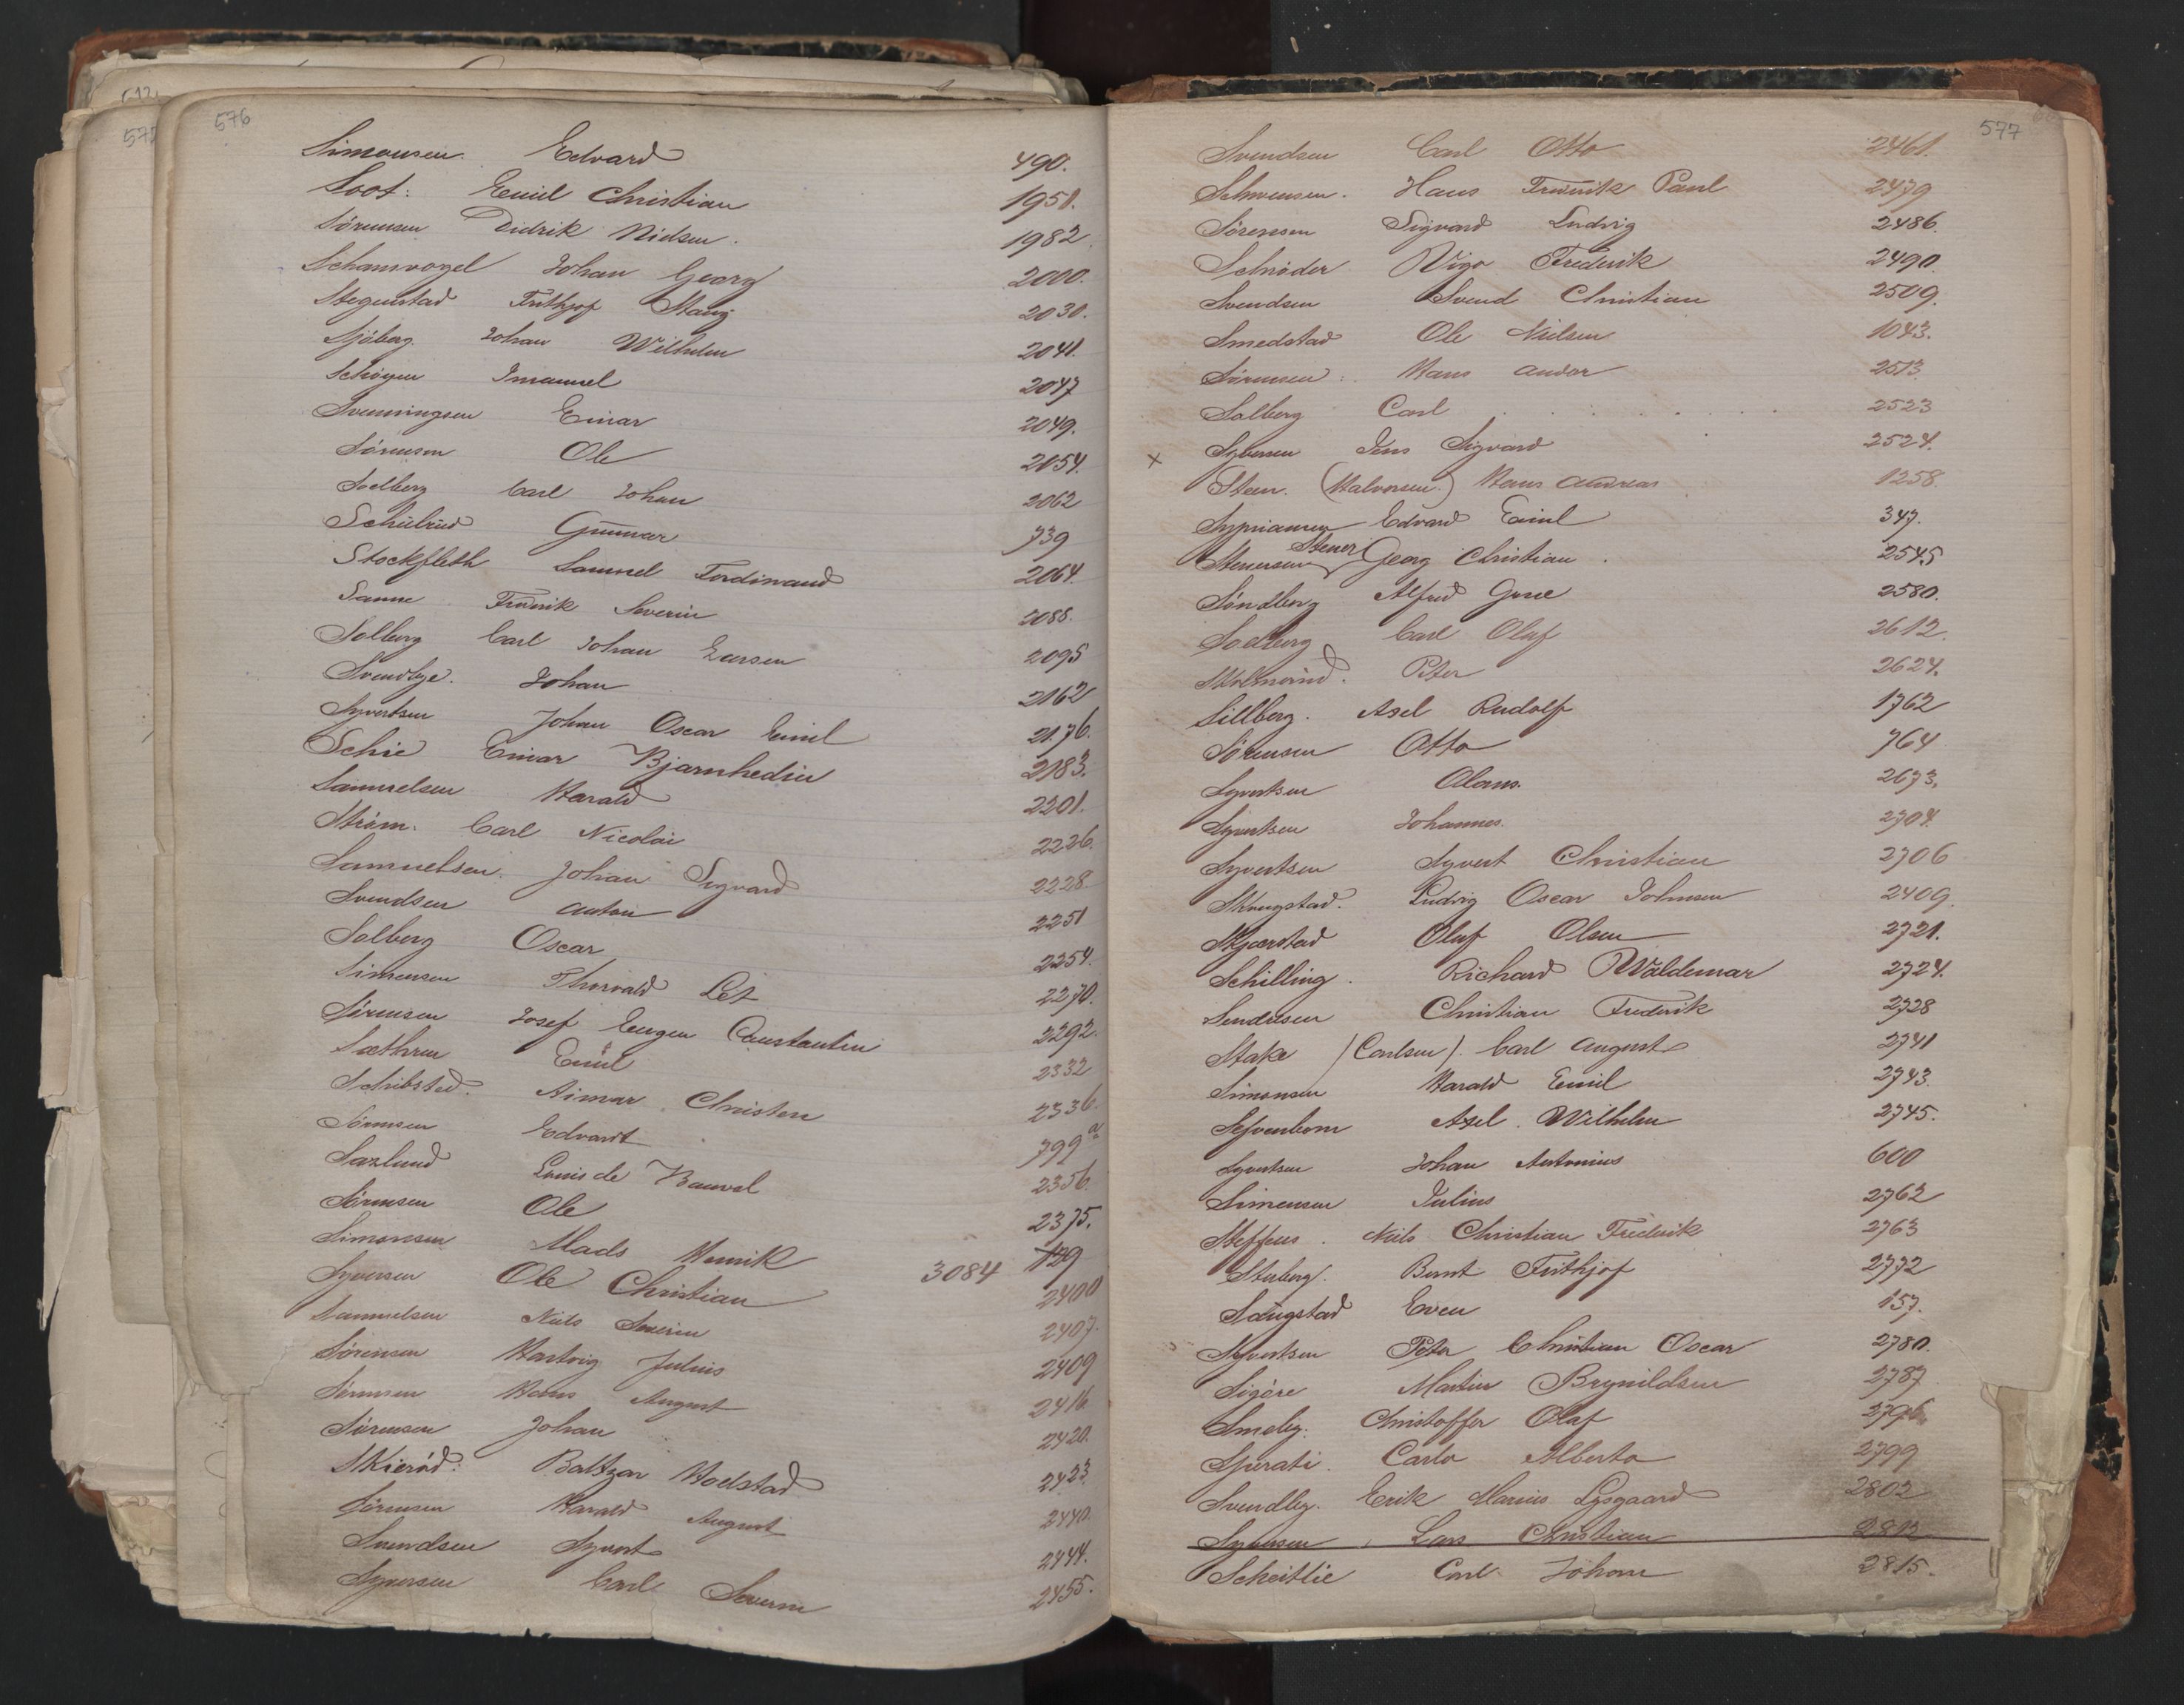 576
Simonsen. Edvard 490.
Soot: Emil Christian 1951.
Sörensen Didrik Nielsen. 1982
Schamvogel Johan Georg 2000.
Stegenstad Frithjof Stang 2030.
Sjöberg. Johan Wilhelm 2041.
Schöyen Imanuel 2047
Svenningsen Einar 2049.
Sörensen Ole 2054.
Soelberg Carl Johan 2062
Schülrud Gunnar 739
Stockfleth Samuel Ferdinand 2064.
Sanne Fredrik Severin 2088.
Solberg Carl Johan Larsen 2095
Svendbye. Johan 2162
Syvertsen Johan Oscar Emil 2176.
Schie Einar Bjarnhedin 2183.
Samuelsen Harald 2201.
Ström. Carl Nicolai 2226.
Samuelsen. Johan Sigvard 2228.
Svendsen Anton 2251
Solberg Oscar 2254.
Simensen Thorvald Let 2270.
Sörensen Josef Eugen Constantin 2292.
Sæthren Emil 2332
Schibsted. Aimar Christen 2336.
Sörensen Edvardt 799 a
Saxlund Louis de Bauval 2356.
Sörensen Ole 2375.
Simonsen Mads Henrik 3084 129
Syversen Ole Christian 2400
Samuelsen Niels Severin 2407.
Sörensen Hartvig Julius 2409
Sörensen Hans August 2416
Sörensen Johan 2420.
Skieröd: Baltzar Hoelstad 2423.
Sörensen Harald August 2440.
Svendsen Syvert 2444.
Syversen Carl Severin 2455.
577
Svendsen Carl Otto 2461.
Schwensen. Hans Fredrik Paul 2479
Sörensen Sigvard Ludvig 2486.
Schröder Vigo Frederik 2490.
Svendsen Svend Christian 2509.
Smedstad Ole Nielsen 1043.
Sörensen: Hans Andor 2513
Solberg Carl 2523
x Syversen Jens Sigvard 2524.
Steen. (Halvorsen.) Hans Andreas 1258
Sypriansen Edvard Emil 347.
Stenersen Stener Georg Christian. 2545
Söndberg Alfred Grue 2580.
Soelberg Carl Olaf 2612.
Peter 2624.
Sillberg. Axel Rudolf 1762
Sörensen Otto 764
Syvertsen Olaus. 2673.
Syvertsen Johannes. 2704.
Syvertsen Syvert Christian 2706
Skrugstad. Ludvig Oscar Johnsen 2409.
Skjærstad Oluf Olsen 2721.
Schilling. Richard Waldemar 2724.
Christian Fredrik 2728
Stake (Carlsen). Carl August 2741
Simonsen Harald Emil 2743.
Axel. Wilhelm 2745.
Syvertsen Johan Antonius 600
Simensen Julius 2762
Steffens. Niels Christian Frederik 2763
Stuberg. Bernt Frithjof 2772
Saugstad Even 157.
Syvertsen Peter Christian Oscar 2780.
Sigöre Martin Brynildsen 2787
Smeby. Christoffer Olaf 2796.
Sperati. Carlo Alberto 2799
Svendby. Erik Marius Lysgaard 2802
Syversen, Lars Christian 2813
Scheitlie Carl Johan 2815.